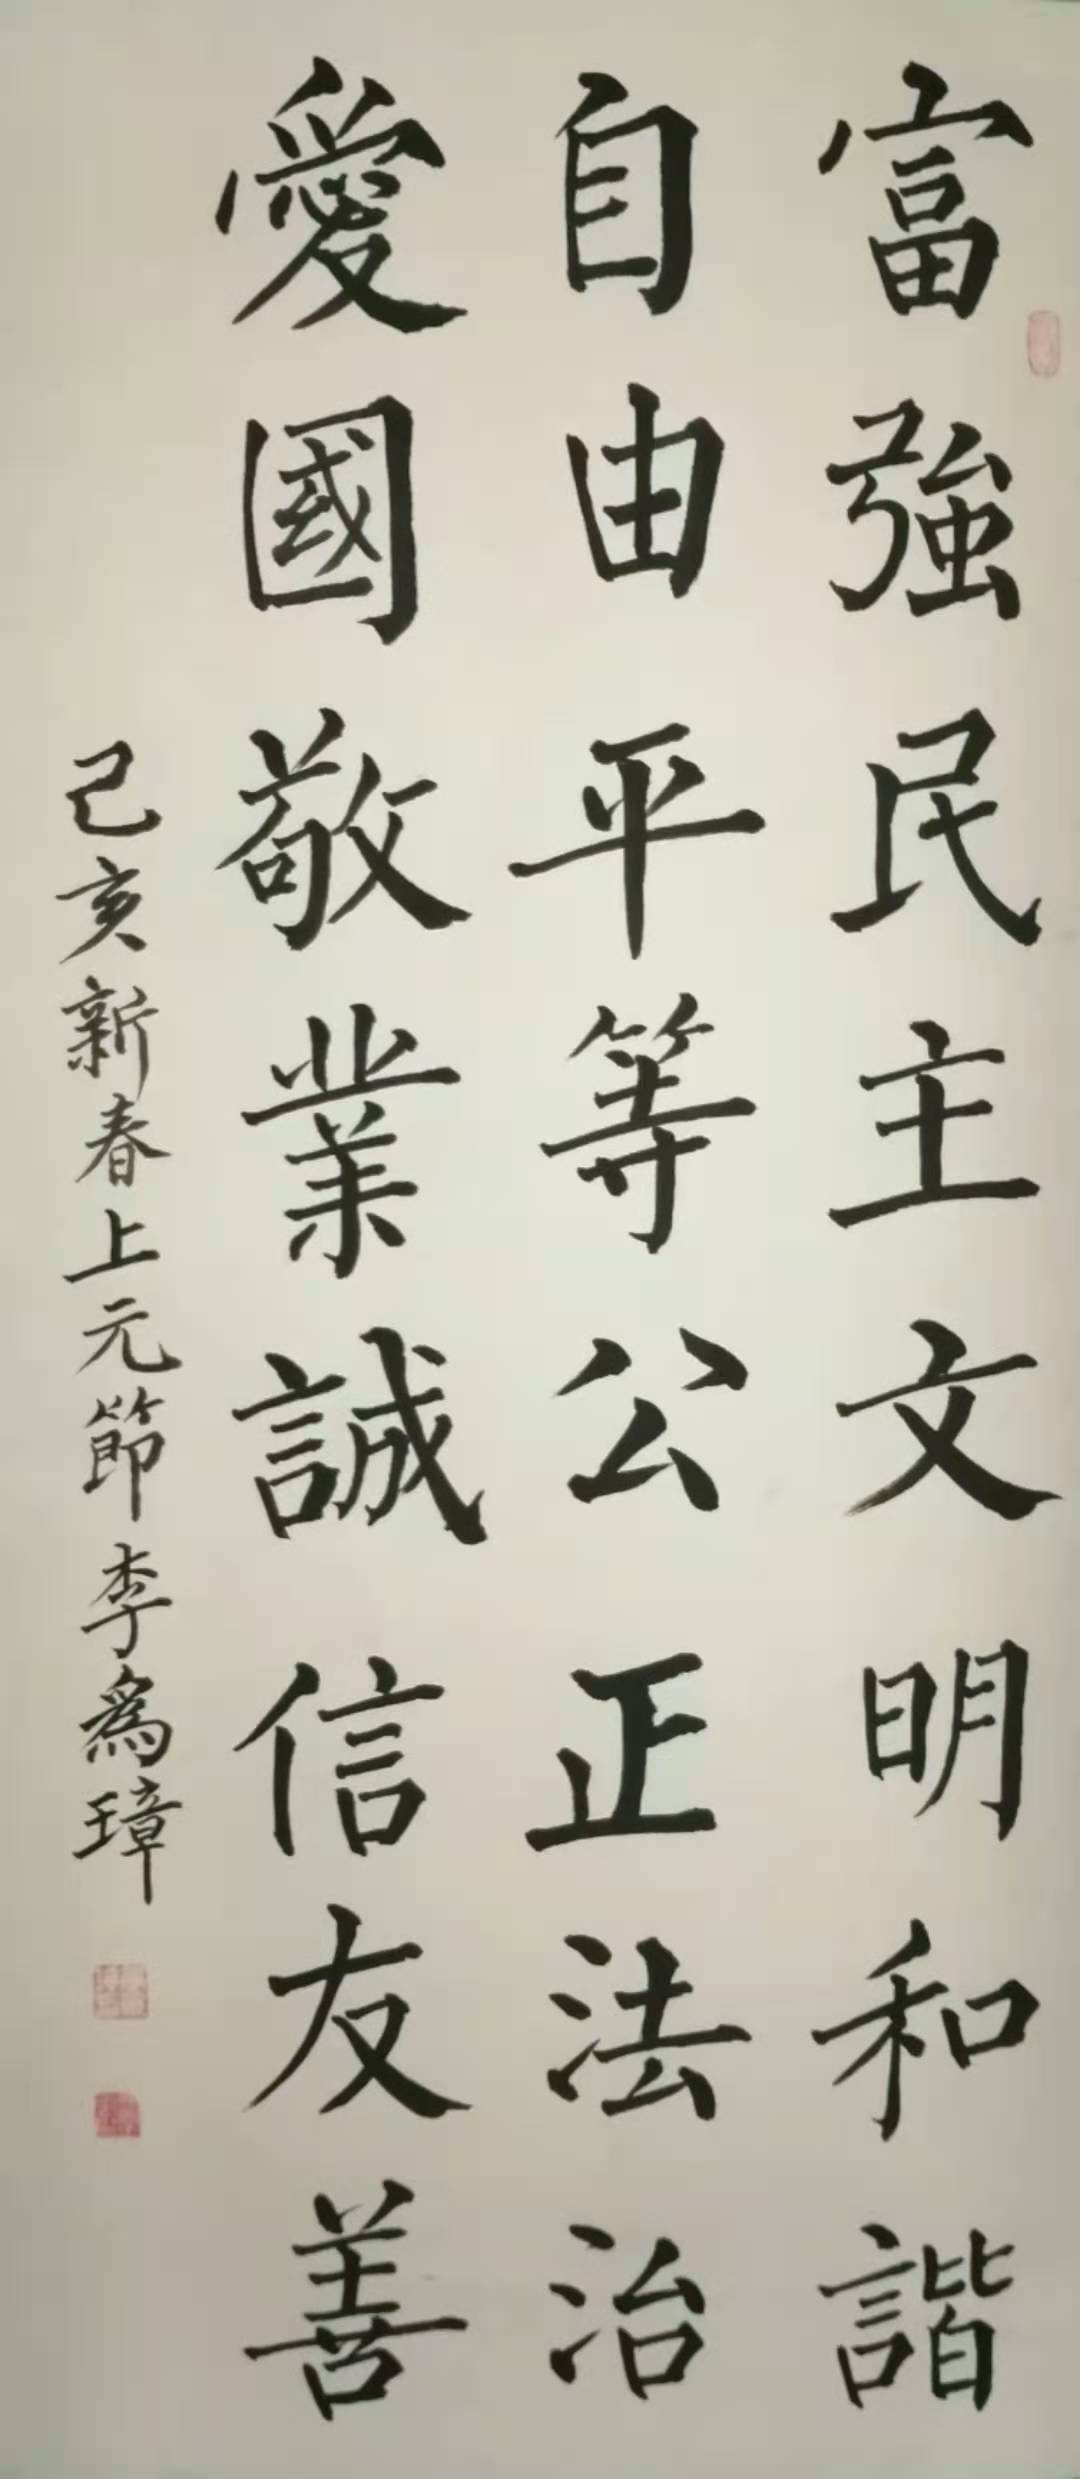 富強民主文明和諧
自由平等公正法治
愛國敬業誠信友善
己亥新春上元節李為璋